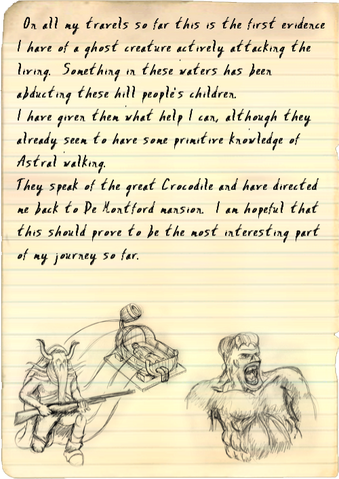 On all my travels so far this is the first evidence
I have of a ghost creature actively attacking the
living. Something in these waters has been
abducting these hill people's children.
I have given them what help I can, although they
already seem to have some primitive knowledge of
Astral walking.
They speak of the great Crocodile and have directed
me back to De Montford mansion. I am hopeful that
this should prove to be the most interesting part
of my journey so far.